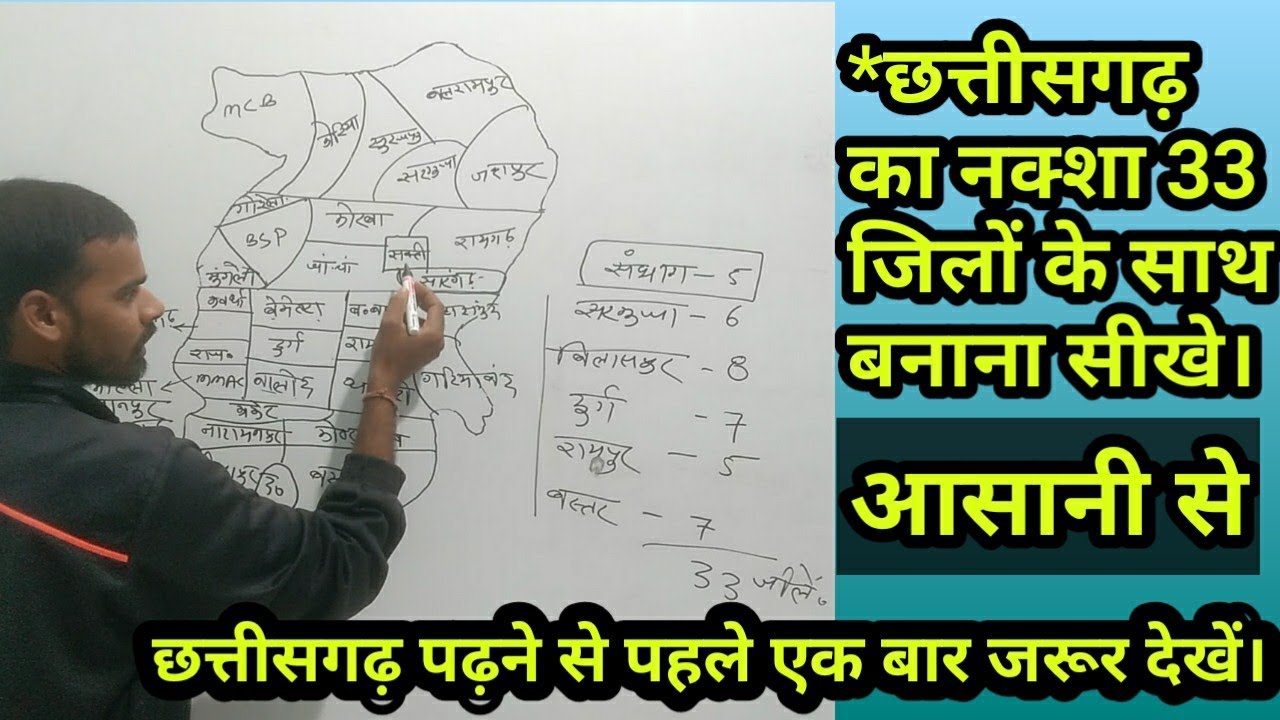 *छत्तीसगढ़
का नक्शा 33
जिलों के साथ
बनाना सीखे।
आसानी से
छत्तीसगढ़ पढ़ने से पहले एक बार जरूर देखें।
MCB
कोरिया
सुरजपुर
बलरामपुर
सरगुजा
जशपुर
कोरबा
BSP
रायगढ़
जां-चां
सक्ती
मुंगेली
सारंगढ़
कवर्धा
बेमेतरा
दुर्ग
राजन०
MMAC
बालोद
गरियाबंद
कांकेर
नारायणपुर
संभाग - 5
सरगुजा - 6
बिलासपुर - 8
दुर्ग - 7
रायपुर - 5
बस्तर - 7
33 जीलें